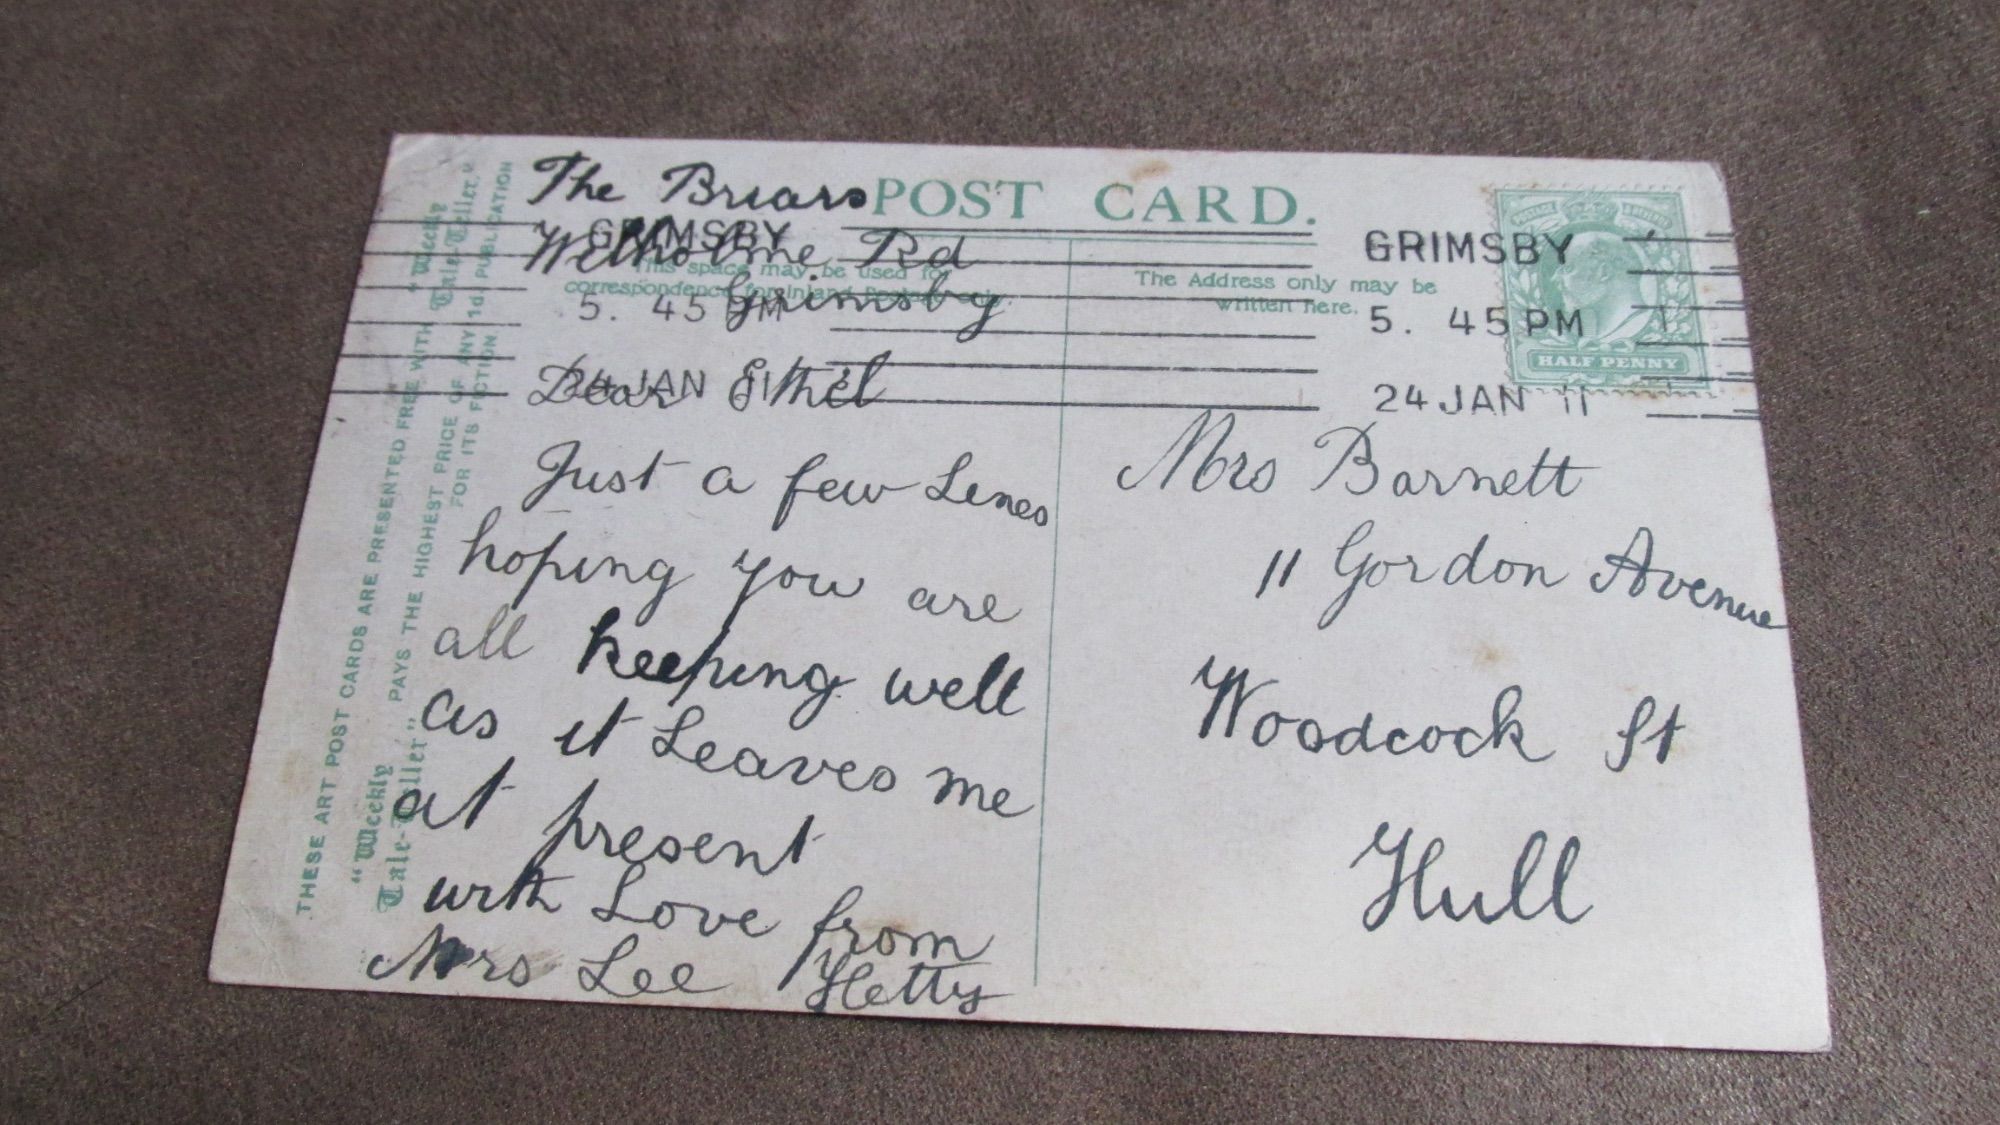 The Briars
Welholme Rd
Grimsby
Dear Ethel
Just a few Lines
hoping you are
all keeping well
as it Leaves me
at present
with Love from
Mrs Lee Hetty
POST CARD.
This space may be used for
correspondence for inland
The Address only may be
written here.
GRIMSBY
5. 45 PM
24 JAN 11
GRIMSBY
5. 45 PM
24 JAN 11
POSTAGE & REVENUE
HALF PENNY
Mrs Barnett
11 Gordon Avenue
Woodcock St
Hull
THESE ART POST CARDS ARE PRESENTED FREE WITH "Weekly
Tale-Teller."
"Weekly
Tale-Teller" PAYS THE HIGHEST PRICE OF ANY 1d. PUBLICATION
FOR ITS FICTION.